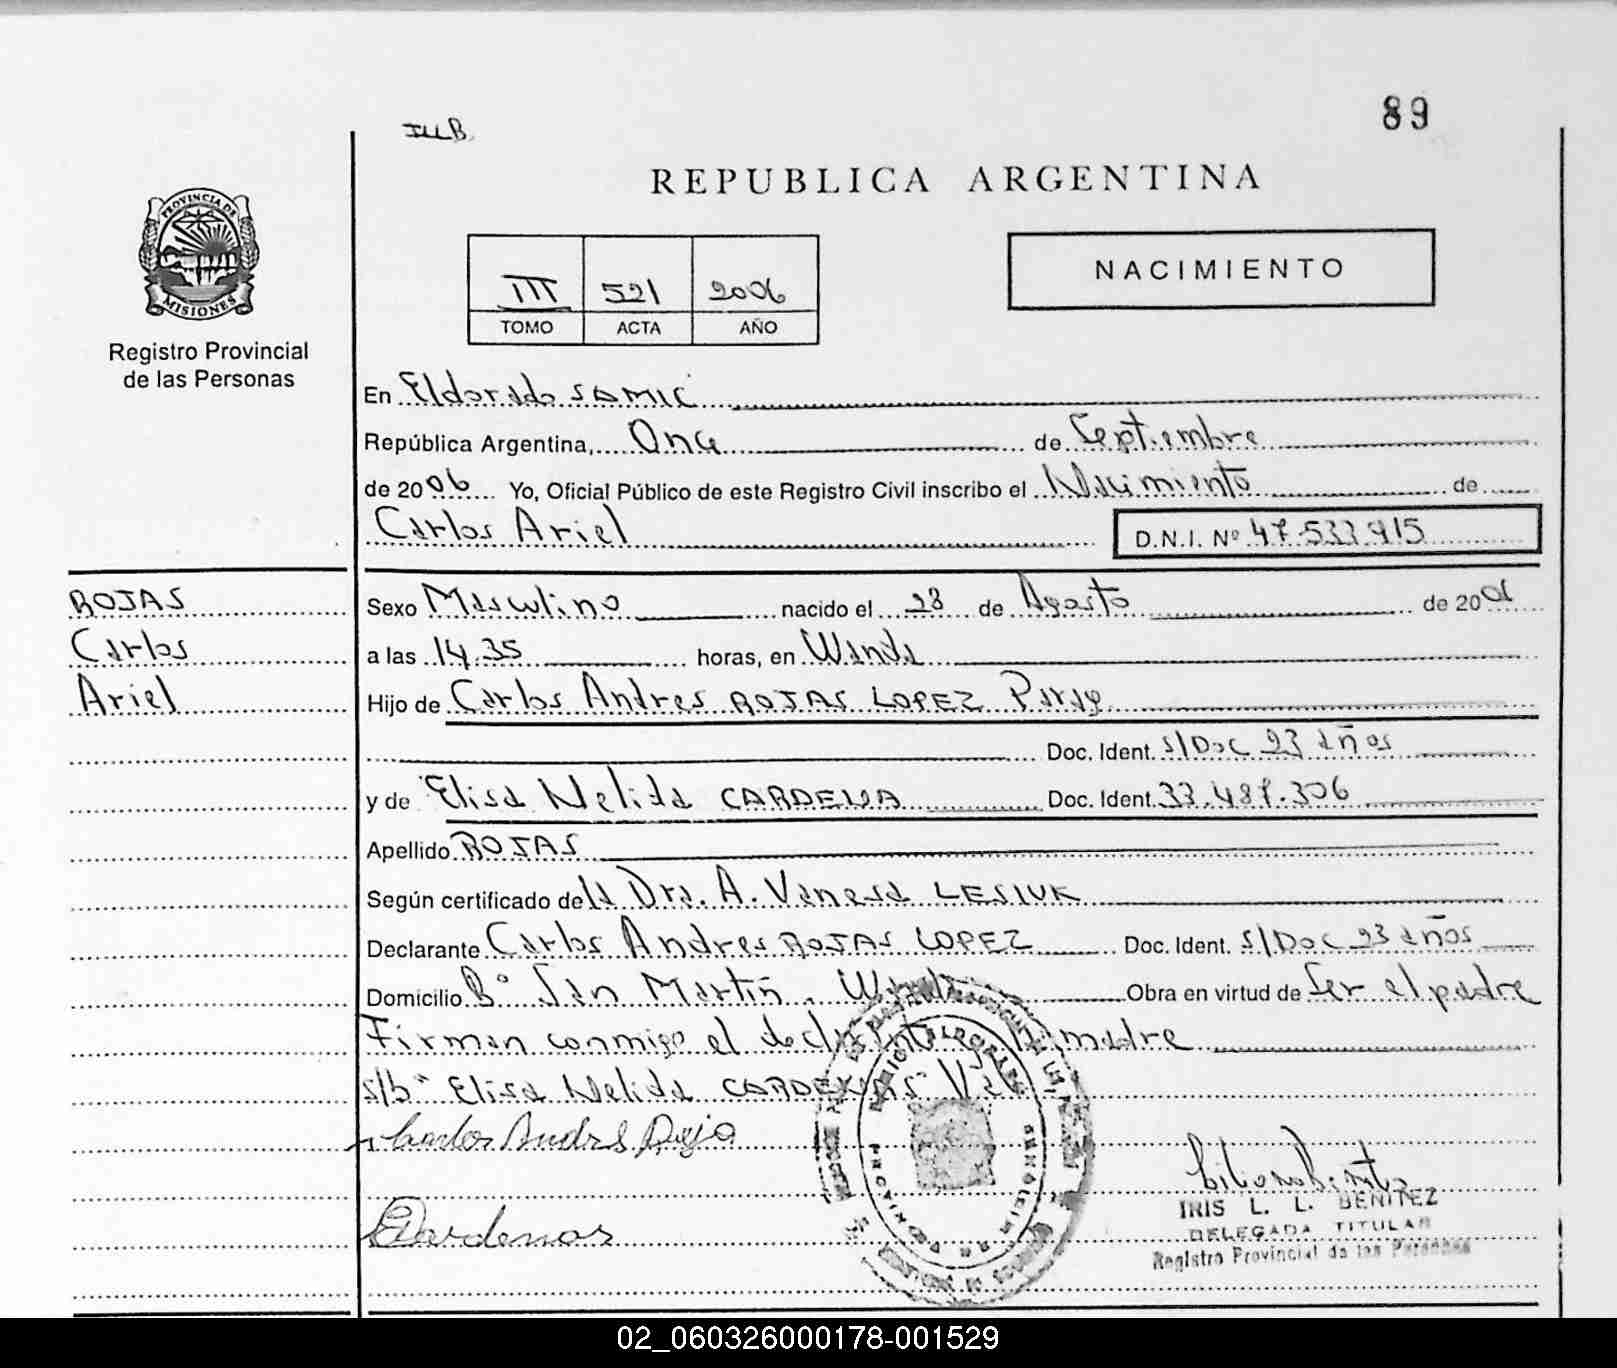 89
ILLB.
REPUBLICA ARGENTINA
PROVINCIA DE
MISIONES
Registro Provincial
de las Personas
III 521 2006
TOMO ACTA AÑO
NACIMIENTO
En Eldorado SAMIC
República Argentina, Once de Septiembre
de 2006 Yo, Oficial Público de este Registro Civil inscribo el Nacimiento de
Carlos Ariel D.N.I. Nº 47.533.915
ROJAS
Carlos
Ariel
Sexo Masculino nacido el 28 de Agosto de 2006
a las 14.35 horas, en Wanda
Hijo de Carlos Andres ROJAS LOPEZ Parag
Doc. Ident. s/Doc 23 años
y de Elisa Nelida Doc. Ident. 33.487.306
Apellido ROJAS
Según certificado de la Dra. A. Vanesa LESIUK
Declarante Carlos Andres ROJAS LOPEZ Doc. Ident. s/Doc 23 años
Domicilio Bº San Martin, Wanda Obra en virtud de Ser el padre
Firman conmigo el declarante y la madre
Elisa Nelida
Carlos Andrs Rojo
Cardenas
IRIS L. L. BENITEZ
DELEGADA TITULAR
Registro Provincial de las Personas
02_060326000178-001529